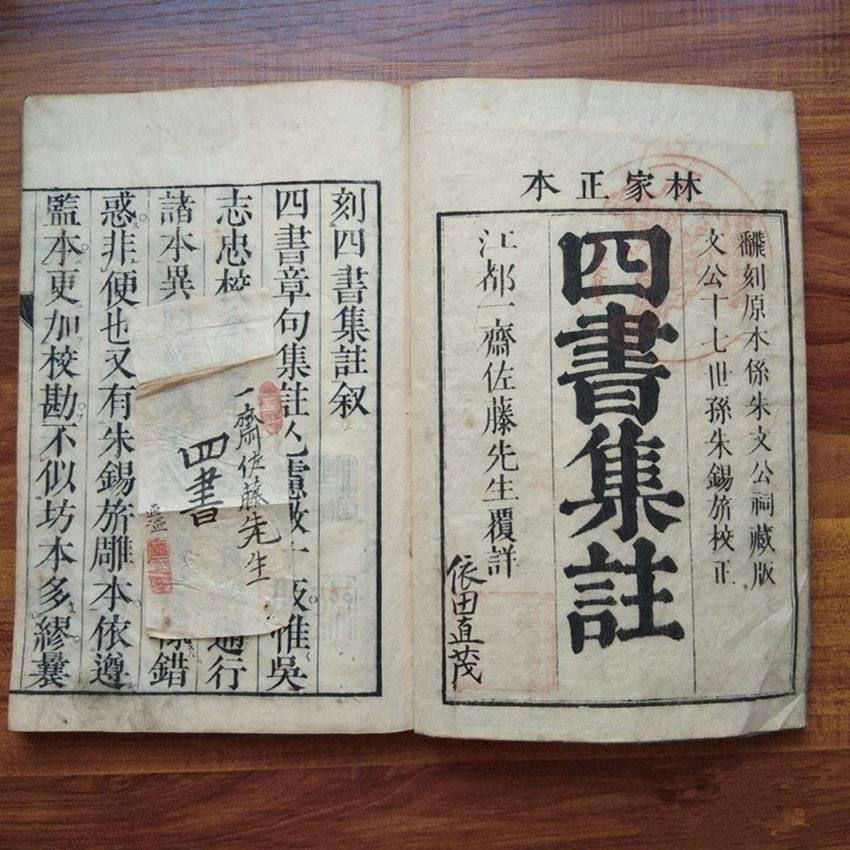 林家正本
飜刻原本係朱文公祠藏版
文公十七世孫朱錫旂校正
四書集註
江都一齋佐藤先生覆詳
依田直茂
刻四書集註叙
四書章句集註
惟吳
志忠校
通行
諸本異
錯
惑非便也又有朱錫旂雕本依遵
監本更加校勘不似坊本多繆曩
一齋佐藤先生
四書